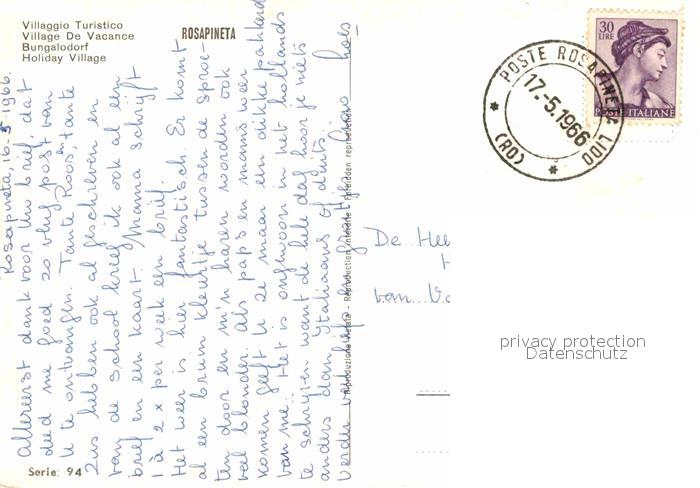 Villaggio Turistico
Village De Vacance
Bungalodorf
Holiday Village
ROSAPINETA
30
LIRE
POSTE ITALIANE
* POSTE ROSAPINETA LIDO * (RO)
17.-5.1966
Rosapineta, 16-5-1966.
Allereerst dank voor Uw brief, dat
deed me goed zo vlug post van
U te ontvangen. Tante Roos, en tante
Zus hebben ook al geschreven en
van de school kreeg ik ook al een
brief en een kaart. Mama schrijft
1 à 2 x per week een brief.
Het weer is hier fantastisch. Er komt
al een bruin kleurtje tussen de sproe-
ten door en m'n haren worden ook
veel blonder. Als paps en mams weer
komen geeft U ze maar een dikke pakkerd
van me. Het is ongewoon in het hollands
te schrijven want de hele dag hoor je niets
anders dan Italiaans of duits.
Verder
De Hee
van
Reproduzione Vietata - Reproduction interdite - Forbidden reproduction
Serie: 94
privacy protection
Datenschutz